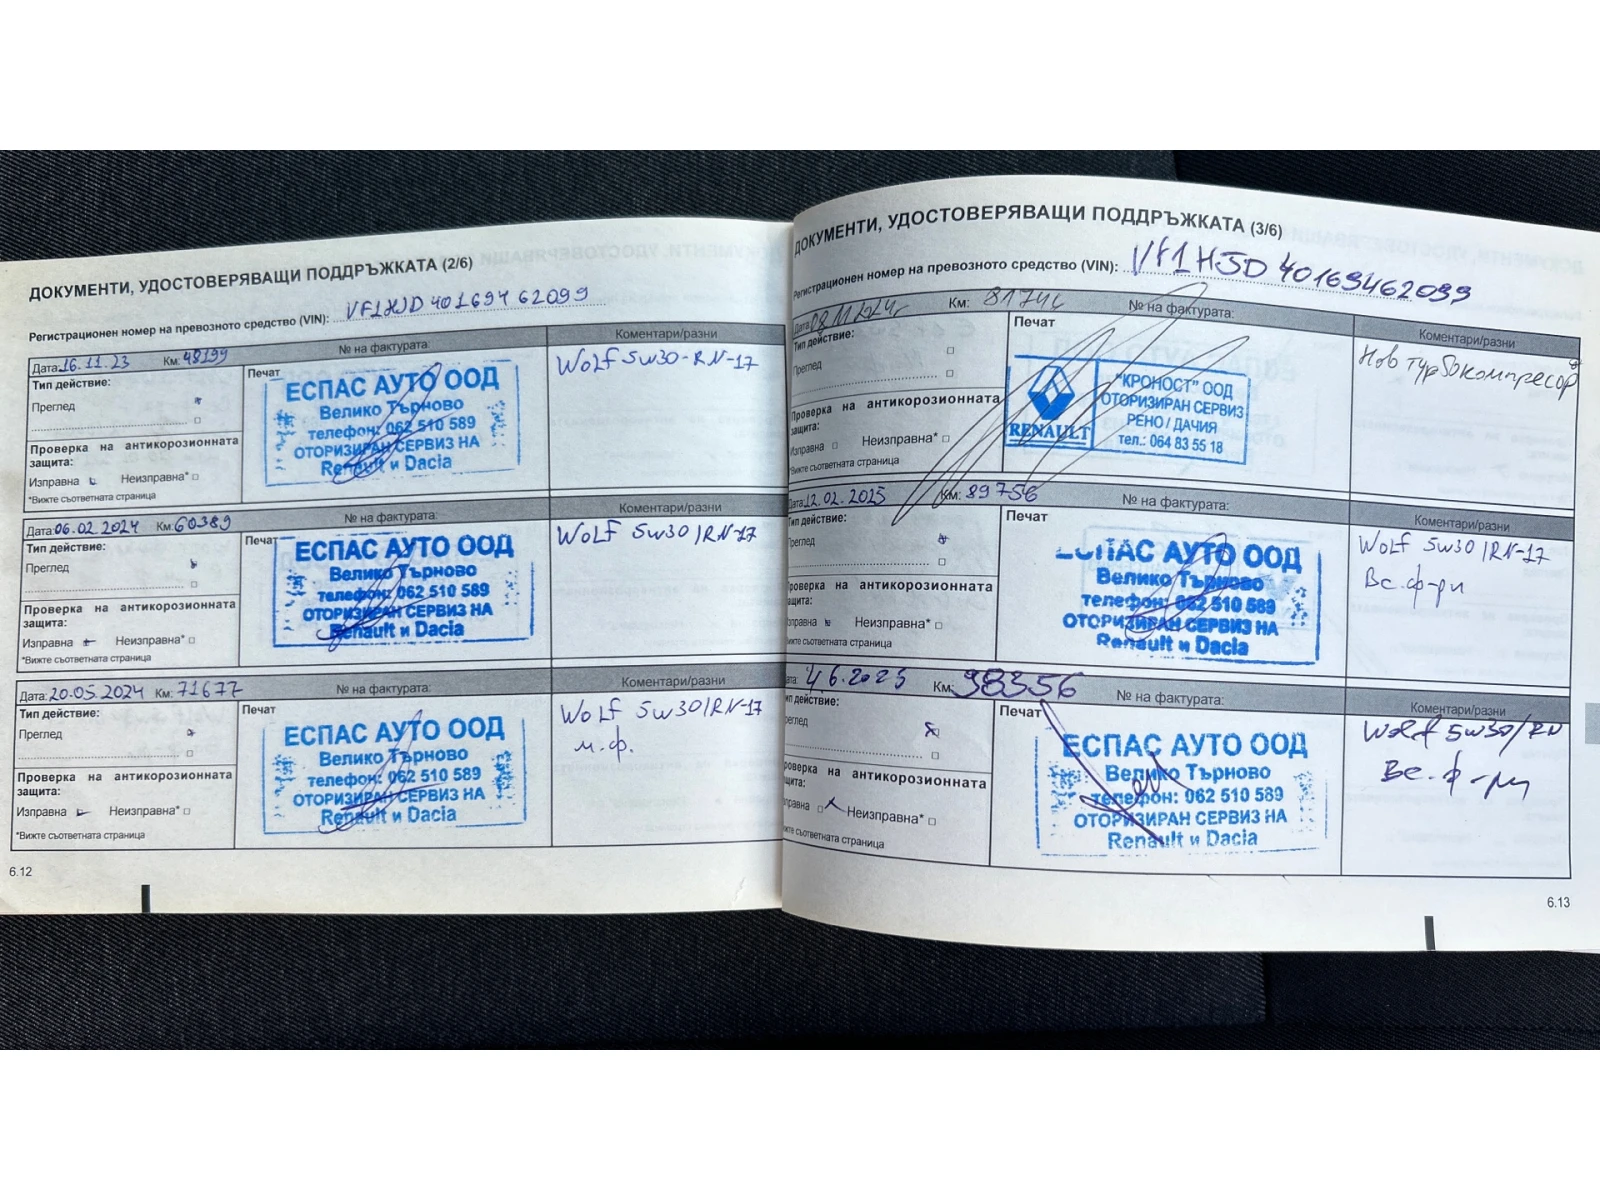 ДОКУМЕНТИ, УДОСТОВЕРЯВАЩИ ПОДДРЪЖКАТА (2/6)
Регистрационен номер на превозното средство (VIN): VF1HJD40169462099
Дата: 16.11.23 Км: 48199 № на фактурата: Коментари/разни
Тип действие:
Преглед
Проверка на антикорозионната
защита:
Изправна Неизправна*
*Вижте съответната страница
Печат
ЕСПАС АУТО ООД
Велико Търново
телефон: 062 510 589
ОТОРИЗИРАН СЕРВИЗ НА
Renault и Dacia
Wolf 5w30-RN-17
Дата: 06.02.2024 Км: 60389 № на фактурата: Коментари/разни
Тип действие:
Преглед
Проверка на антикорозионната
защита:
Изправна Неизправна*
*Вижте съответната страница
Печат
ЕСПАС АУТО ООД
Велико Търново
телефон: 062 510 589
ОТОРИЗИРАН СЕРВИЗ НА
Renault и Dacia
Wolf 5w30/RN-17
Дата: 20.05.2024 Км: 71677 № на фактурата: Коментари/разни
Тип действие:
Преглед
Проверка на антикорозионната
защита:
Изправна Неизправна*
*Вижте съответната страница
Печат
ЕСПАС АУТО ООД
Велико Търново
телефон: 062 510 589
ОТОРИЗИРАН СЕРВИЗ НА
Renault и Dacia
Wolf 5w30/RN-17
м.ф.
6.12
ДОКУМЕНТИ, УДОСТОВЕРЯВАЩИ ПОДДРЪЖКАТА (3/6)
Регистрационен номер на превозното средство (VIN): VF1HJD40169462099
Дата: 08.11.24г Км: № на фактурата: Коментари/разни
Тип действие:
Преглед
Проверка на антикорозионната
защита:
Изправна Неизправна*
*Вижте съответната страница
Печат
RENAULT
"КРОНОСТ" ООД
ОТОРИЗИРАН СЕРВИЗ
РЕНО / ДАЧИЯ
тел.: 064 83 55 18
Нов турбокомпресор
Дата: 12.02.2025 Км: 89756 № на фактурата: Коментари/разни
Тип действие:
Преглед
Проверка на антикорозионната
защита:
Изправна Неизправна*
*Вижте съответната страница
Печат
ЕСПАС АУТО ООД
Велико Търново
телефон: 062 510 589
ОТОРИЗИРАН СЕРВИЗ НА
Renault и Dacia
Wolf 5w30/RN-17
Вс.ф-ри
Дата: 4.6.2025 Км: 98356 № на фактурата: Коментари/разни
Тип действие:
Преглед
Проверка на антикорозионната
защита:
Изправна Неизправна*
*Вижте съответната страница
Печат
ЕСПАС АУТО ООД
Велико Търново
телефон: 062 510 589
ОТОРИЗИРАН СЕРВИЗ НА
Renault и Dacia
Wolf 5w30/RN
Вс.ф-ри
6.13